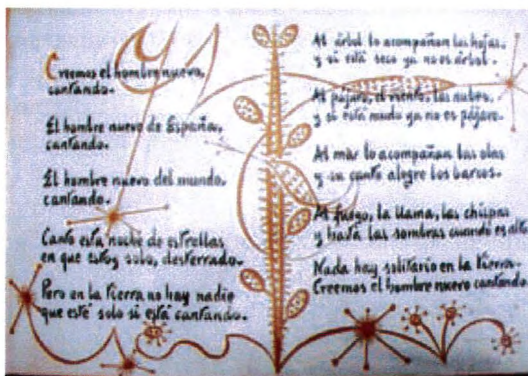 Creemos el hombre nuevo,
cantando.
El hombre nuevo de España,
cantando.
El hombre nuevo del mundo,
cantando.
Canto esta noche de estrellas
en que estoy solo, desterrado.
Pero en la tierra no hay nadie
que esté solo si está cantando.
Al árbol lo acompañan las hojas,
y si está seco ya no es árbol.
Al pájaro, el viento, las nubes,
y si está mudo ya no es pájaro.
Al mar lo acompañan las olas
y su canto alegre los barcos.
Al fuego, la llama, las chispas
y hasta las sombras cuando es alto.
Nada hay solitario en la tierra.
Creemos el hombre nuevo cantando.